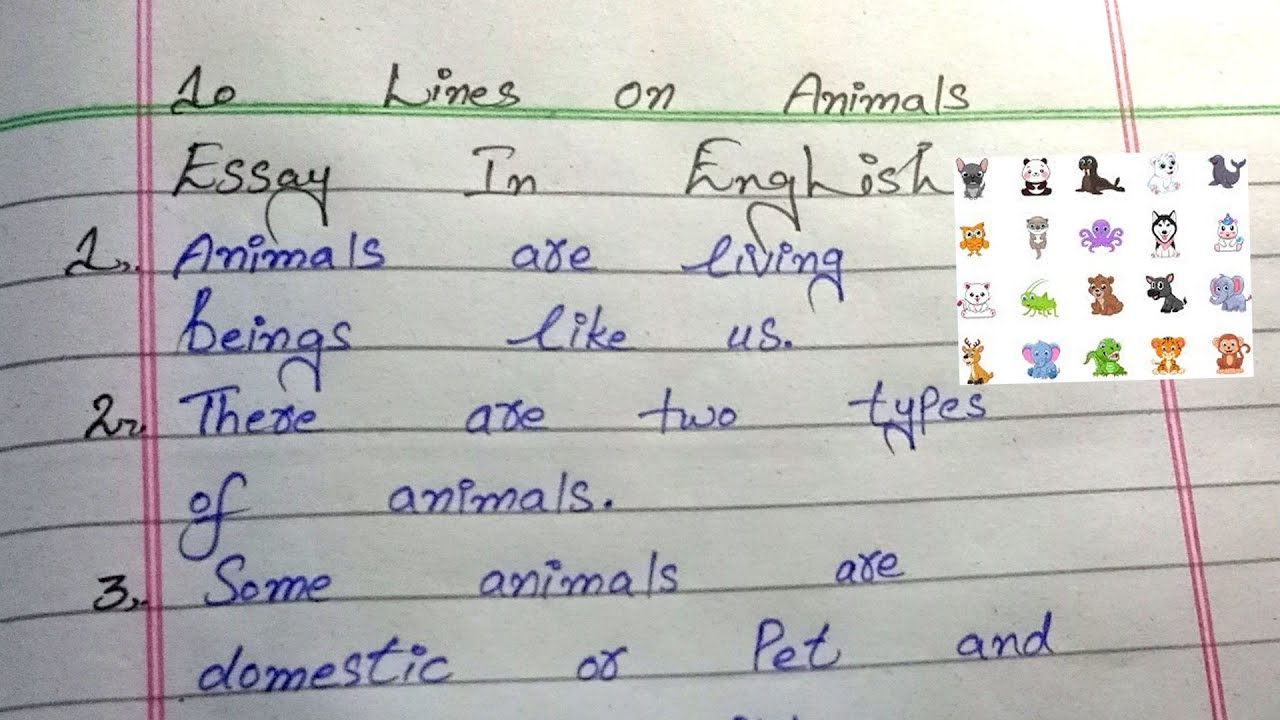 10 Lines on Animals
Essay In English
1. Animals are living
beings like us.
2. There are two types
of animals.
3. Some animals are
domestic or Pet and